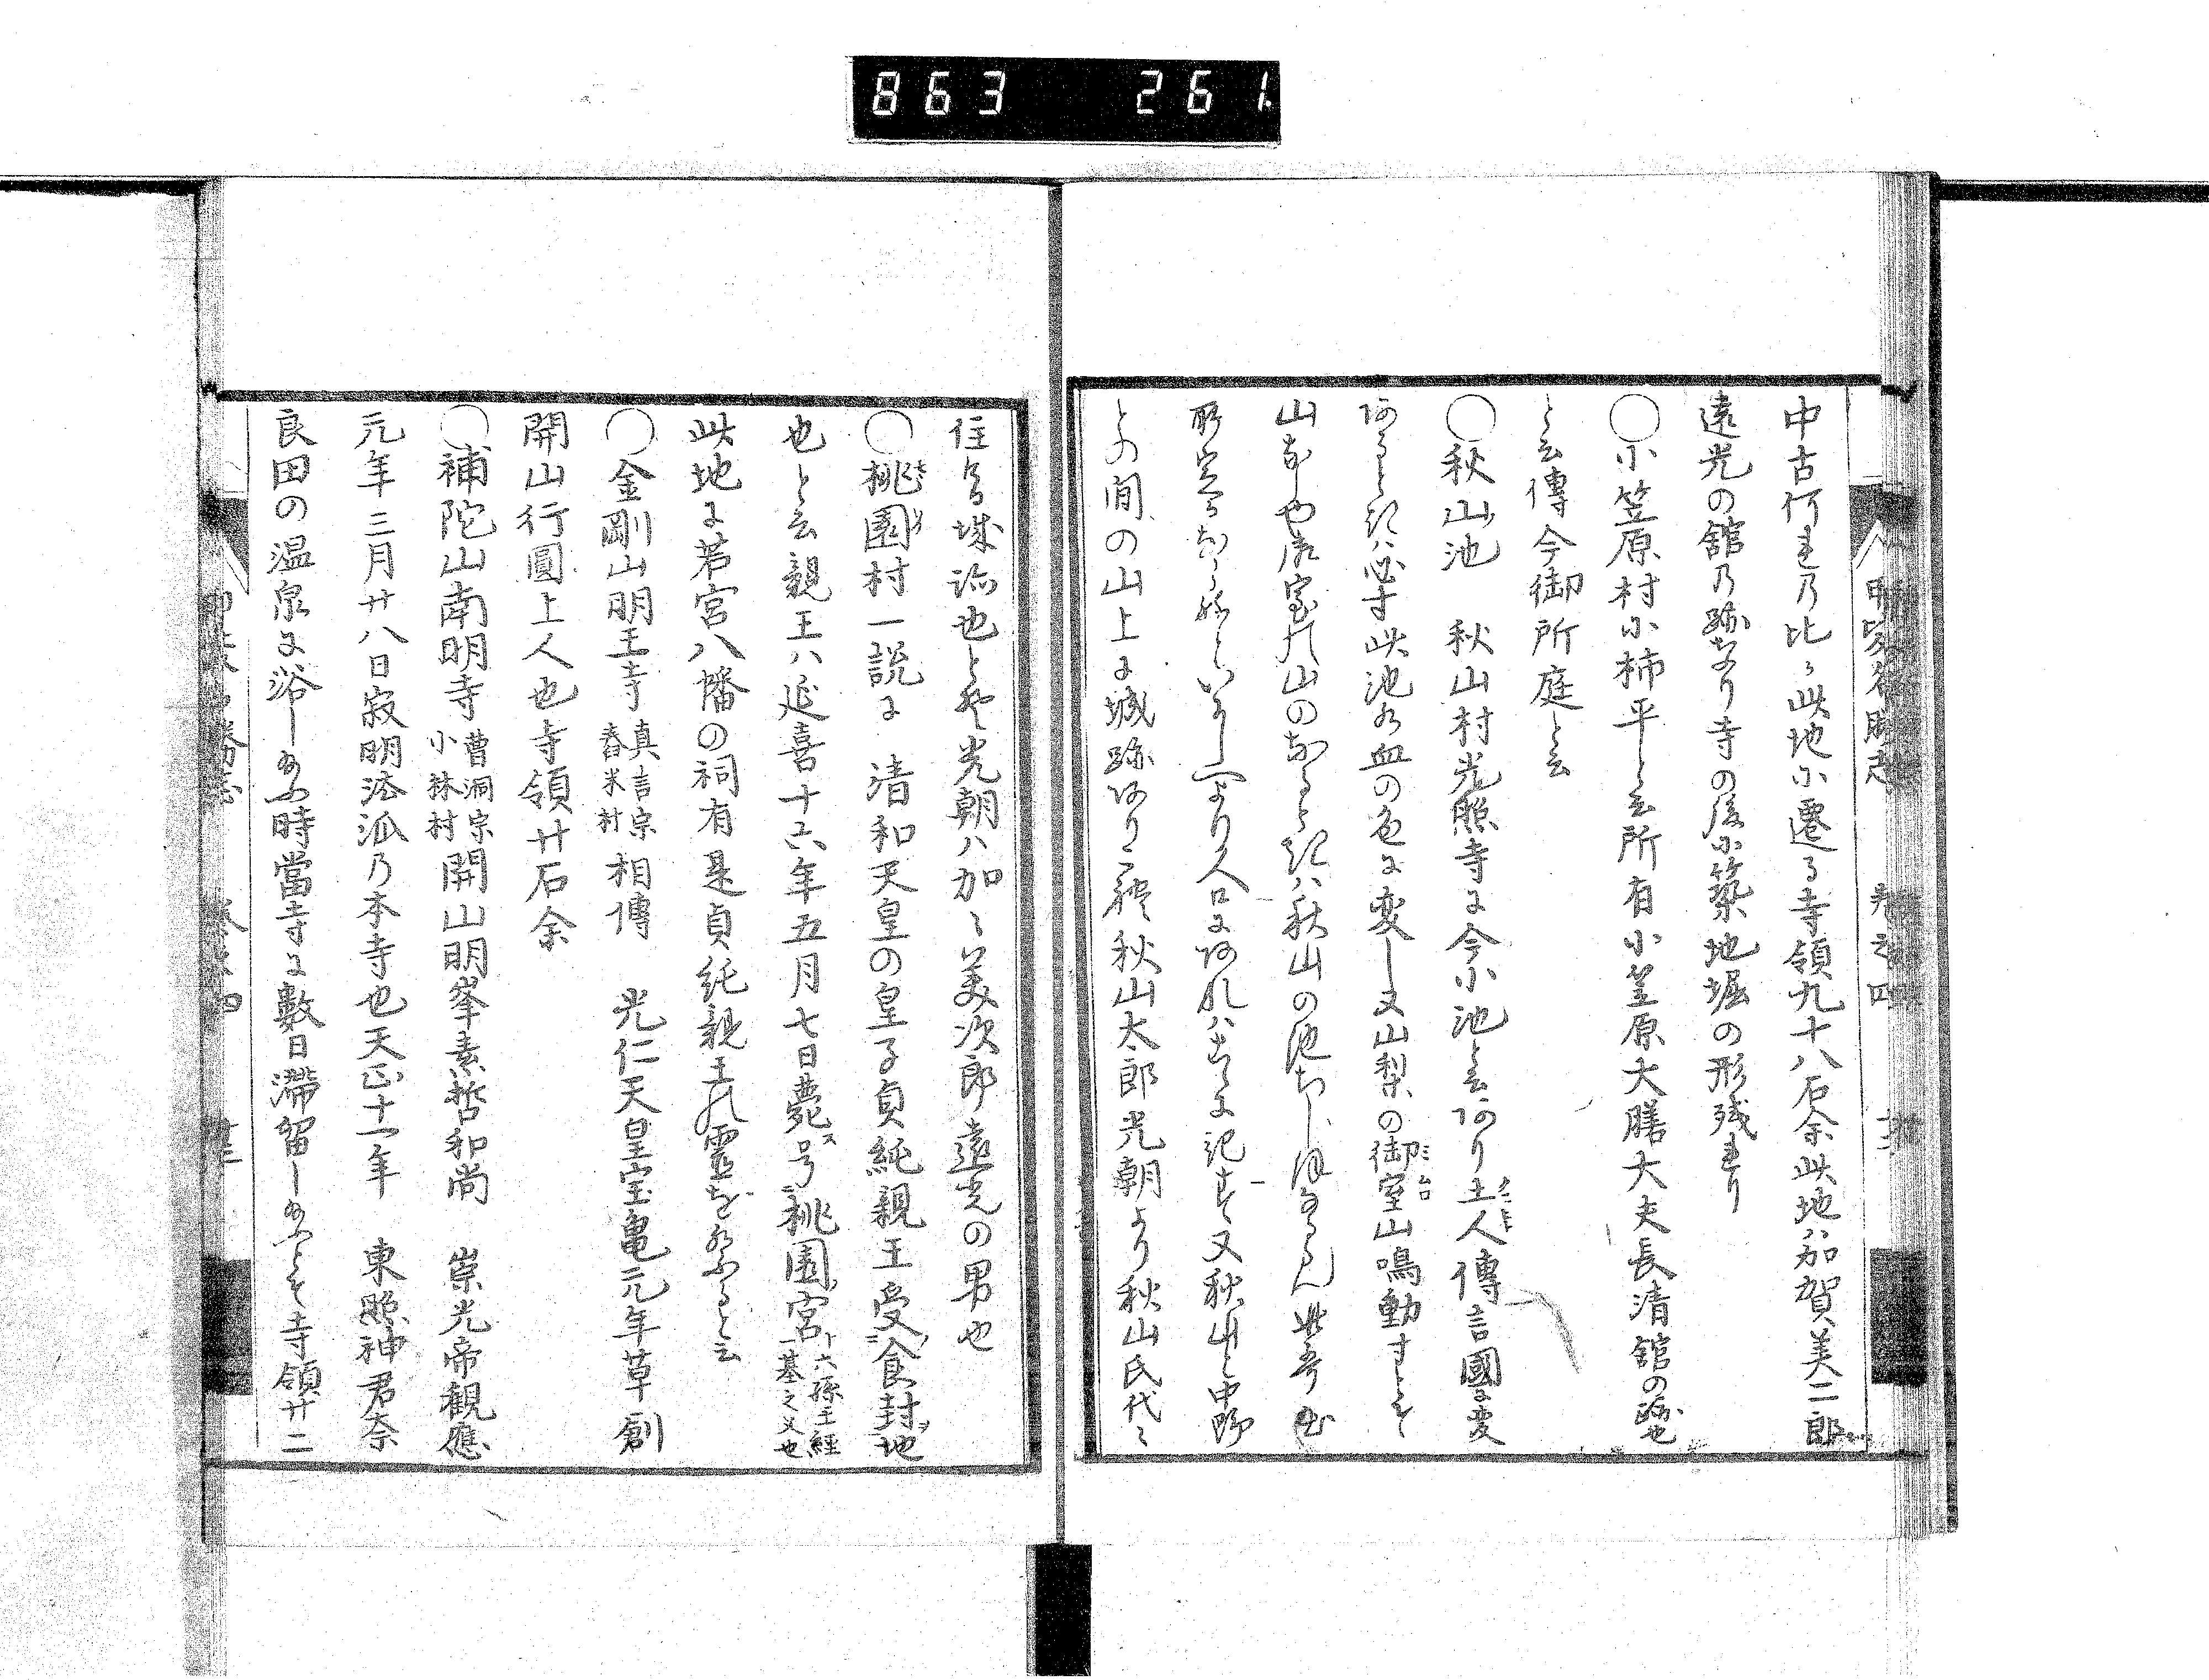 863 261
中古何れの比か此地に遷る寺領九十八石余此地ハ加賀美二郎
遠光の舘の跡なり寺の後に築地堀の形残れり
○小笠原村小柿平と云所有小笠原大膳大夫長清舘の跡也
と云傳今御所庭と云
○秋山池　秋山村光照寺に今小池と云あり土人傳言國に変
あるときハ必す此池水血の色に変し又山梨の御室山鳴動すとそ
山なしや御室の山のなるときハ秋山の池ち
人口にあれハこゝに記す又秋山と中野
との間の山上に城跡あり 秋山太郎光朝より秋山氏代々
住る城跡也とそ光朝ハ加々美次郎遠光の男也
○桃園村一説に　清和天皇の皇子貞純親王受食封地
也と云親王ハ延喜十六年五月七日薨ス号桃園宮十六孫王経基之父也
此地に若宮八幡の祠有是貞純親王の霊を祭ると云
○金剛山明王寺真言宗舂米村相傳　光仁天皇宝亀元年草創
開山行圓上人也寺領廿石余
○補陀山南明寺曹洞宗小林村開山明峯素哲和尚　崇光帝観應
元年三月廿八日寂明法派乃本寺也天正十一年　東照神君奈
良田の温泉に浴し給ふ時當寺に數日滞留し給ふとそ寺領廿二